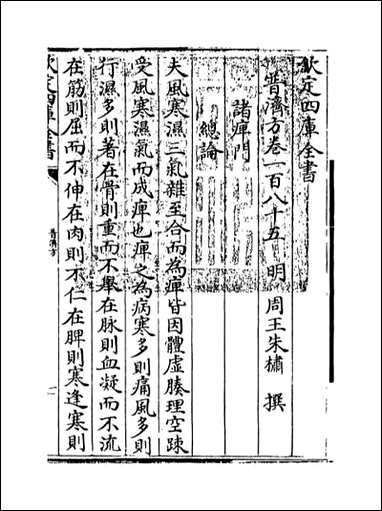 欽定四庫全書
普濟方卷一百八十五 明 周王朱橚 撰
諸痺門
總論
夫風寒濕三氣雜至合而為痺皆因體虚腠理空疎
受風寒濕氣而成痺也痺之為病寒多則痛風多則
行濕多則著在骨則重而不舉在脉則血凝而不流
在筋則屈而不伸在肉則不仁在脾則寒逢寒則
欽定四庫全書
普濟方
一